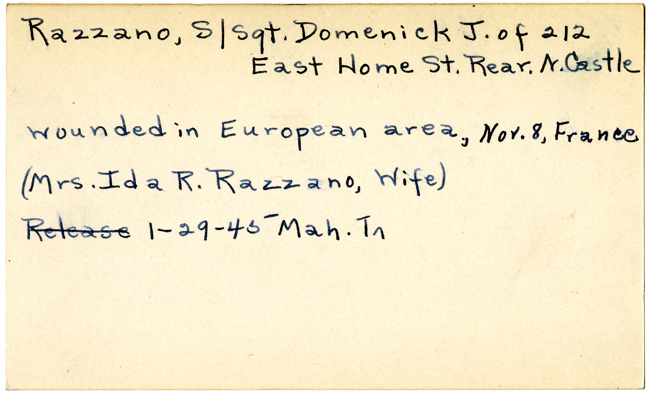 Razzano, S/Sgt. Domenick J. of 212
East Home St. Rear. N. Castle
wounded in European area, Nov. 8, France
(Mrs. Ida R. Razzano, Wife)
Release 1-29-45 Mah. Tn